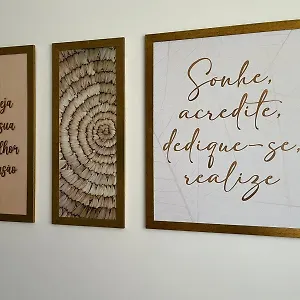 eja
sua
lhor
são
Sonhe,
acredite,
dedique-se,
realize